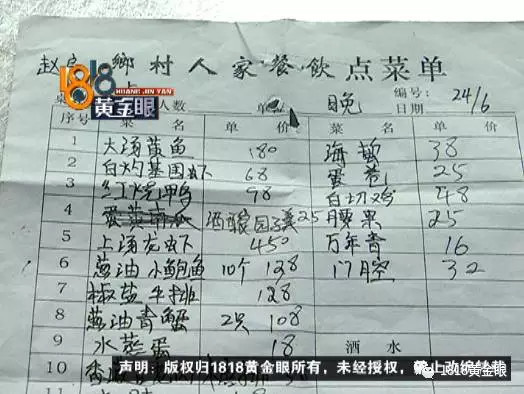 1818
HUANG JIN YAN
黄金眼
赵 鄉村人家餐飲点菜单
人数 单 晚 编号:
日期 24/6
序号 菜名 单价 菜名 单价
1 大汤黄鱼 180 海蜇 38
2 白灼基围虾 68 蛋卷 25
3 红烧甲鱼 98 白切鸡 48
4 蛋黄南瓜 酒酿圆子 25 腰果 25
5 上汤龙虾 450 万年青 16
6 葱油小鲍鱼 10个 128 门腔 32
7 椒盐牛排 128
8 葱油青蟹 2只 108
9 水蒸蛋 18 酒水
10
声明:版权归1818黄金眼所有,未经授权,禁止改编转载
1818黄金眼